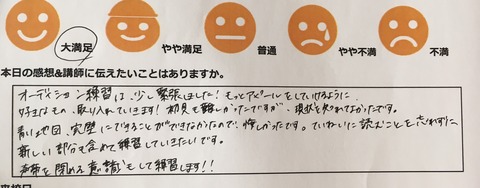 大満足 やや満足 普通 やや不満 不満
本日の感想&講師に伝えたいことはありますか。
オーディション練習は、少し緊張しました!もっとアピールをしていけるように
好きなもの、取り入れていきます!初見も難しかったですが、現状を知れてよかったです。
青い地図、実際にできることができなかったので、悔しかったです。ていねいに読むことを忘れずに
新しい部分も含めて練習していきたいです。
声帯を閉める意識もして練習します!!